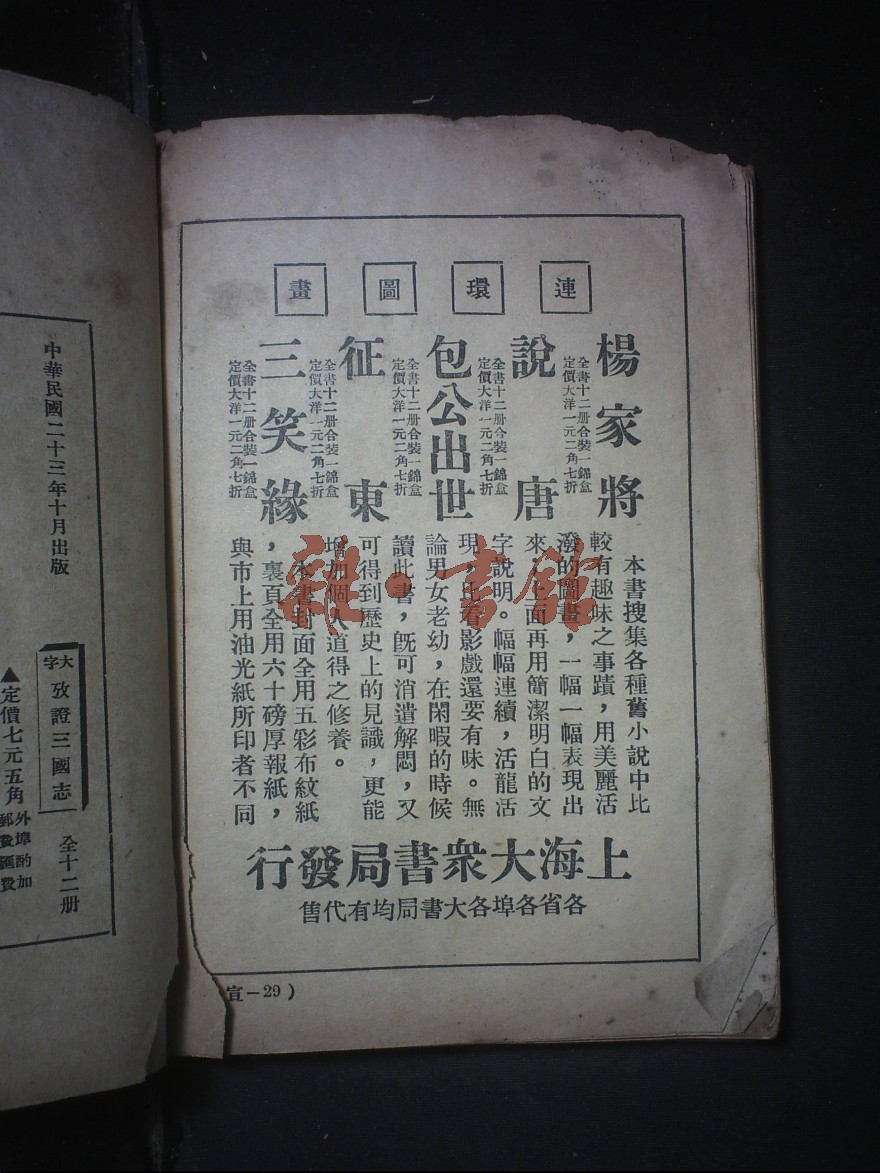 連環圖畫
楊家將
全書十二册合裝一錦盒
定價大洋一元二角七折
說唐
全書十二册合裝一錦盒
定價大洋一元二角七折
包公出世
全書十二册合裝一錦盒
定價大洋一元二角七折
征東
全書十二册合裝一錦盒
定價大洋一元二角七折
三笑緣
全書十二册合裝一錦盒
定價大洋一元二角七折
本書搜集各種舊小說中比
較有趣味之事蹟，用美麗活
潑的圖畫，一幅一幅表現出
來，上面再用簡潔明白的文
字說明。幅幅連續，活龍活
現，比看影戲還要有味。無
論男女老幼，在閑暇的時候
讀此書，既可消遣解悶，又
可得到歷史上的見識，更能
增加個人道得之修養。
本書封面全用五彩布紋紙
，裏頁全用六十磅厚報紙，
與市上用油光紙所印者不同
上海大衆書局發行
各省各埠各大書局均有代售
宣－29）
雜·書館
大字
攷證三國志
全十二册
▲定價七元五角
外埠酌加
郵費匯費
中華民國二十三年十月出版